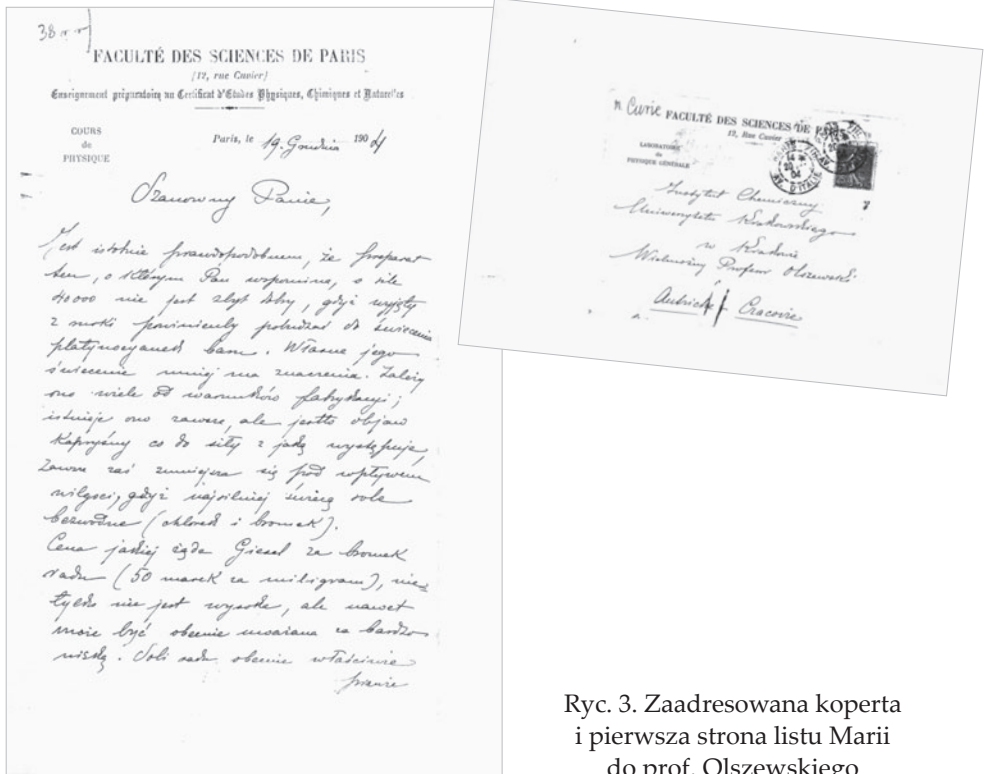 38
FACULTÉ DES SCIENCES DE PARIS
(12, rue Cuvier)
Enseignement préparatoire au Certificat d'Études Physiques, Chimiques et Naturelles
COURS
de
PHYSIQUE
Paris, le 19. Grudnia 1904
Szanowny Panie,
Jest istotnie prawdopodobnem, że preparat
ten, o którym Pan wspomina, o sile
40000 nie jest zbyt dobry, gdyż wyjęty
z powinienby pobudzać do świecenia
platynocyanek baru. Własne jego
świecenie mniej ma znaczenia. Zależy
ono wiele od warunków fabrykacyi;
istnieje ono zawsze, ale jestto objaw
kapryśny co do siły z jaką występuje,
Zawsze zaś zmniejsza się pod wpływem
wilgoci, gdyż najsilniej świecą sole
bezwodne (chlorek i bromek).
Cena jakiej żąda Giesel za bromek
radu (50 marek za miligram), nie
tylko nie jest wysoka, ale nawet
może być obecnie uważana za bardzo
niską. Soli radu obecnie właściwie
prawie
Curie
FACULTÉ DES SCIENCES DE PARIS
12, Rue Cuvier
LABORATOIRE
de
PHYSIQUE GÉNÉRALE
AV. D'ITALIE
04
Instytut Chemiczny
Uniwersytetu Krakowskiego
w Krakowie
Wielmożny Profesor Olszewski
Autriche Cracovie
Ryc. 3. Zaadresowana koperta
i pierwsza strona listu Marii
do prof. Olszewskiego